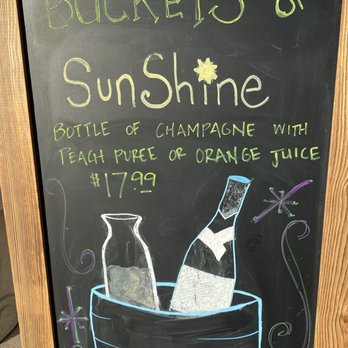 BUCKETS of
SunShine
BOTTLE OF CHAMPAGNE WITH
PEACH PUREE OR ORANGE JUICE
$17.99